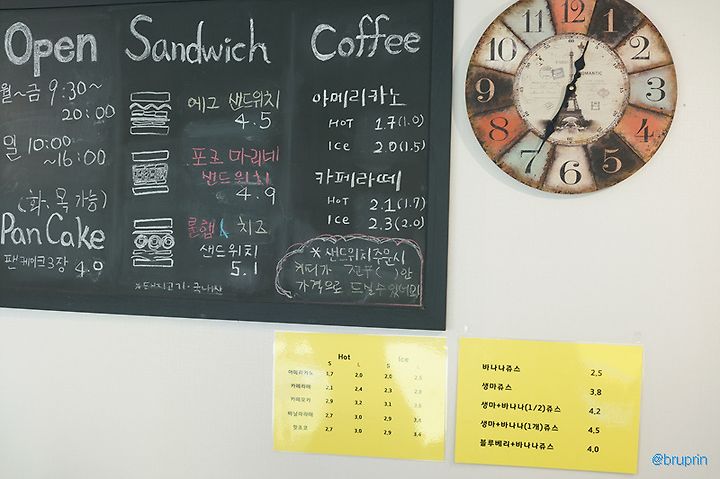 Open
월~금 9:30~
20:00
일 10:00
~16:00
(화.목 가능)
PanCake
팬케이크3장 4.9
Sandwich
에그 샌드위치
4.5
포크 마리네
샌드위치
4.9
롤햄& 치즈
샌드위치
5.1
*돼지고기-국내산
Coffee
아메리카노
HOT 1.7(1.0)
ICE 2.0(1.5)
카페라떼
HOT 2.1(1.7)
ICE 2.3(2.0)
*샌드위치주문시
커피가 전부( )안
가격으로 드실수있어요
11 12 1
10 2
9 3
8 4
7 6 5
ROMANTIC
Hot Ice
S L S L
아메리카노 1,7 2,0 2,0 2,5
카페라떼 2,1 2,4 2,3 2,8
카페모카 2,9 3,2 3,1
바닐라라떼 2,7 3,0 2,9 3,4
핫초코 2,7 3,0 2,9 3,4
바나나쥬스 2,5
생마쥬스 3,8
생마+바나나(1/2)쥬스 4,2
생마+바나나(1개)쥬스 4,5
블루베리+바나나쥬스 4,0
@bruprin